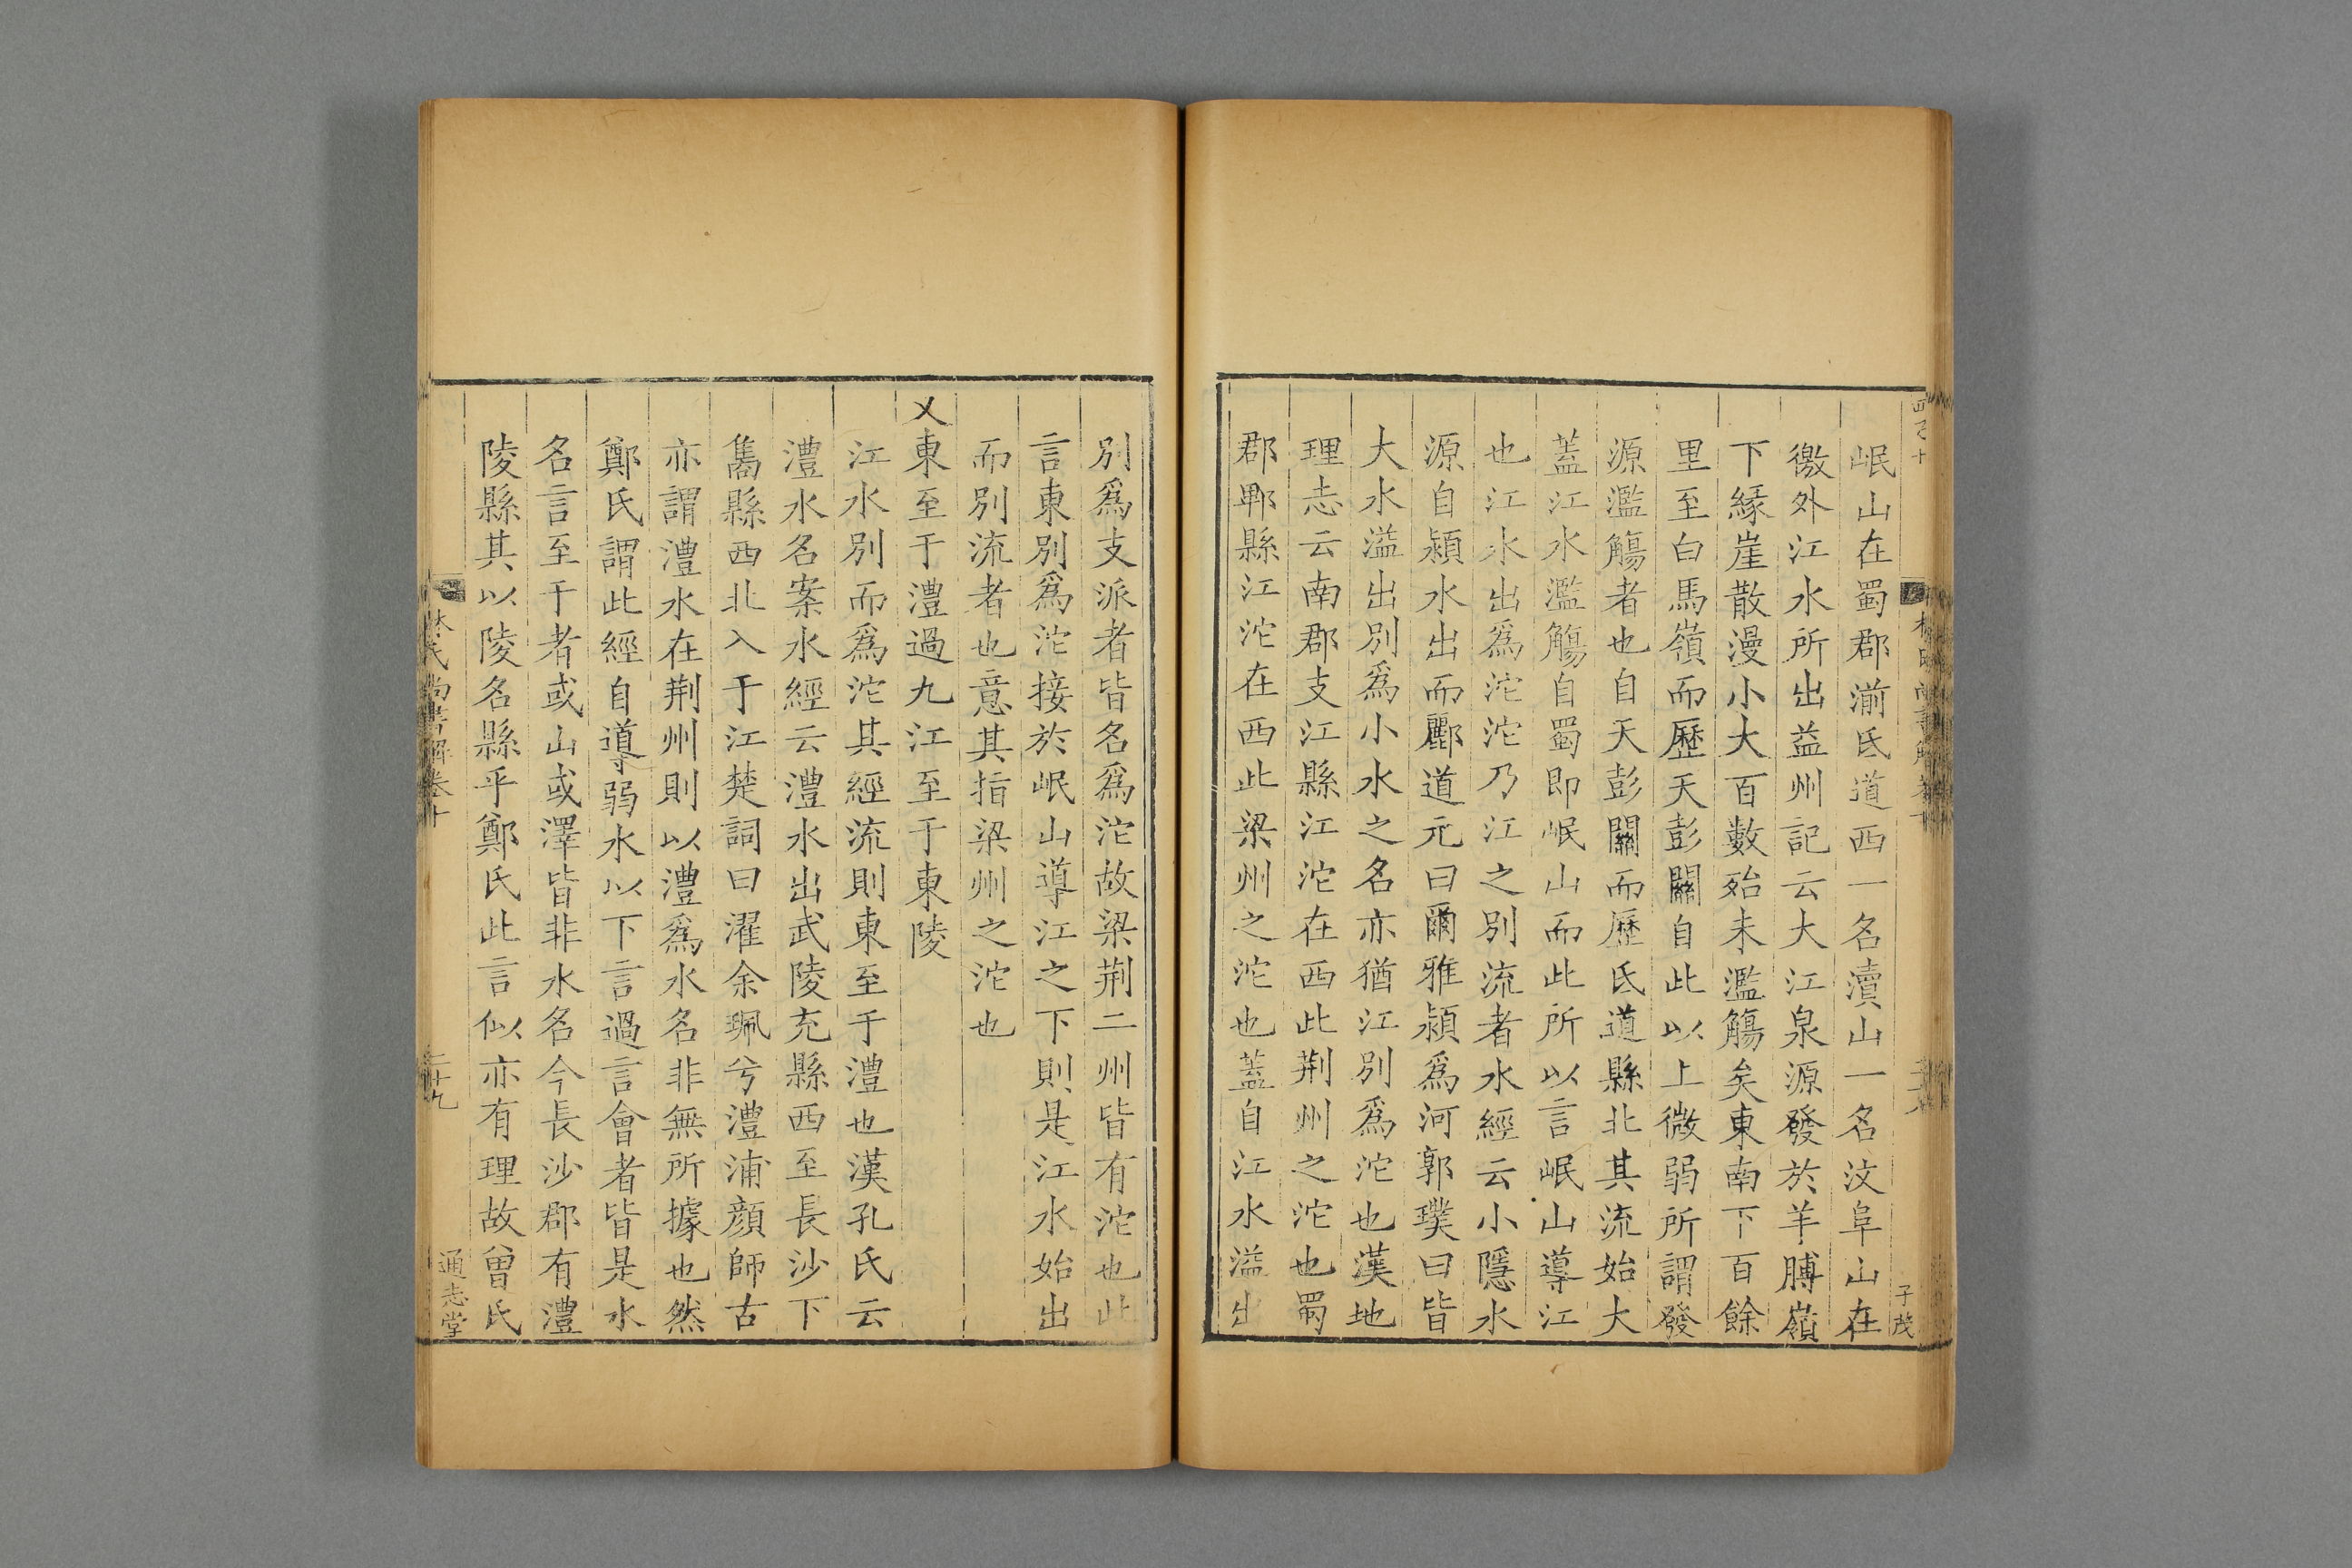 岷山在蜀郡湔氐道西一名瀆山一名汶阜山在
徼外江水所出益州記云大江泉源發於羊膊嶺
下緣崖散漫小大百數殆未濫觴矣東南下百餘
里至白馬嶺而歷天彭關自此以上微弱所謂發
源濫觴者也自天彭關而歷氐道縣北其流始大
蓋江水濫觴自蜀即岷山而此所以言岷山導江
也江水出爲沱沱乃江之別流者水經云小隱水
源自潁水出而酈道元曰爾雅潁爲河郭璞曰皆
大水溢出別爲小水之名亦猶江別爲沱也漢地
理志云南郡支江縣江沱在西此荆州之沱也蜀
郡郫縣江沱在西此梁州之沱也蓋自江水溢出
子茂
別爲支派者皆名爲沱故梁荆二州皆有沱也此
言東別爲沱接於岷山導江之下則是江水始出
而別流者也意其指梁州之沱也
又東至于澧過九江至于東陵
江水別而爲沱其經流則東至于澧也漢孔氏云
澧水名案水經云澧水出武陵充縣西至長沙下
雋縣西北入于江楚詞曰濯余珮兮澧浦顔師古
亦謂澧水在荆州則以澧爲水名非無所據也然
鄭氏謂此經自導弱水以下言過言會者皆是水
名言至于者或山或澤皆非水名今長沙郡有澧
陵縣其以陵名縣乎鄭氏此言似亦有理故曾氏
林氏尚書解卷十
二十九
通志堂